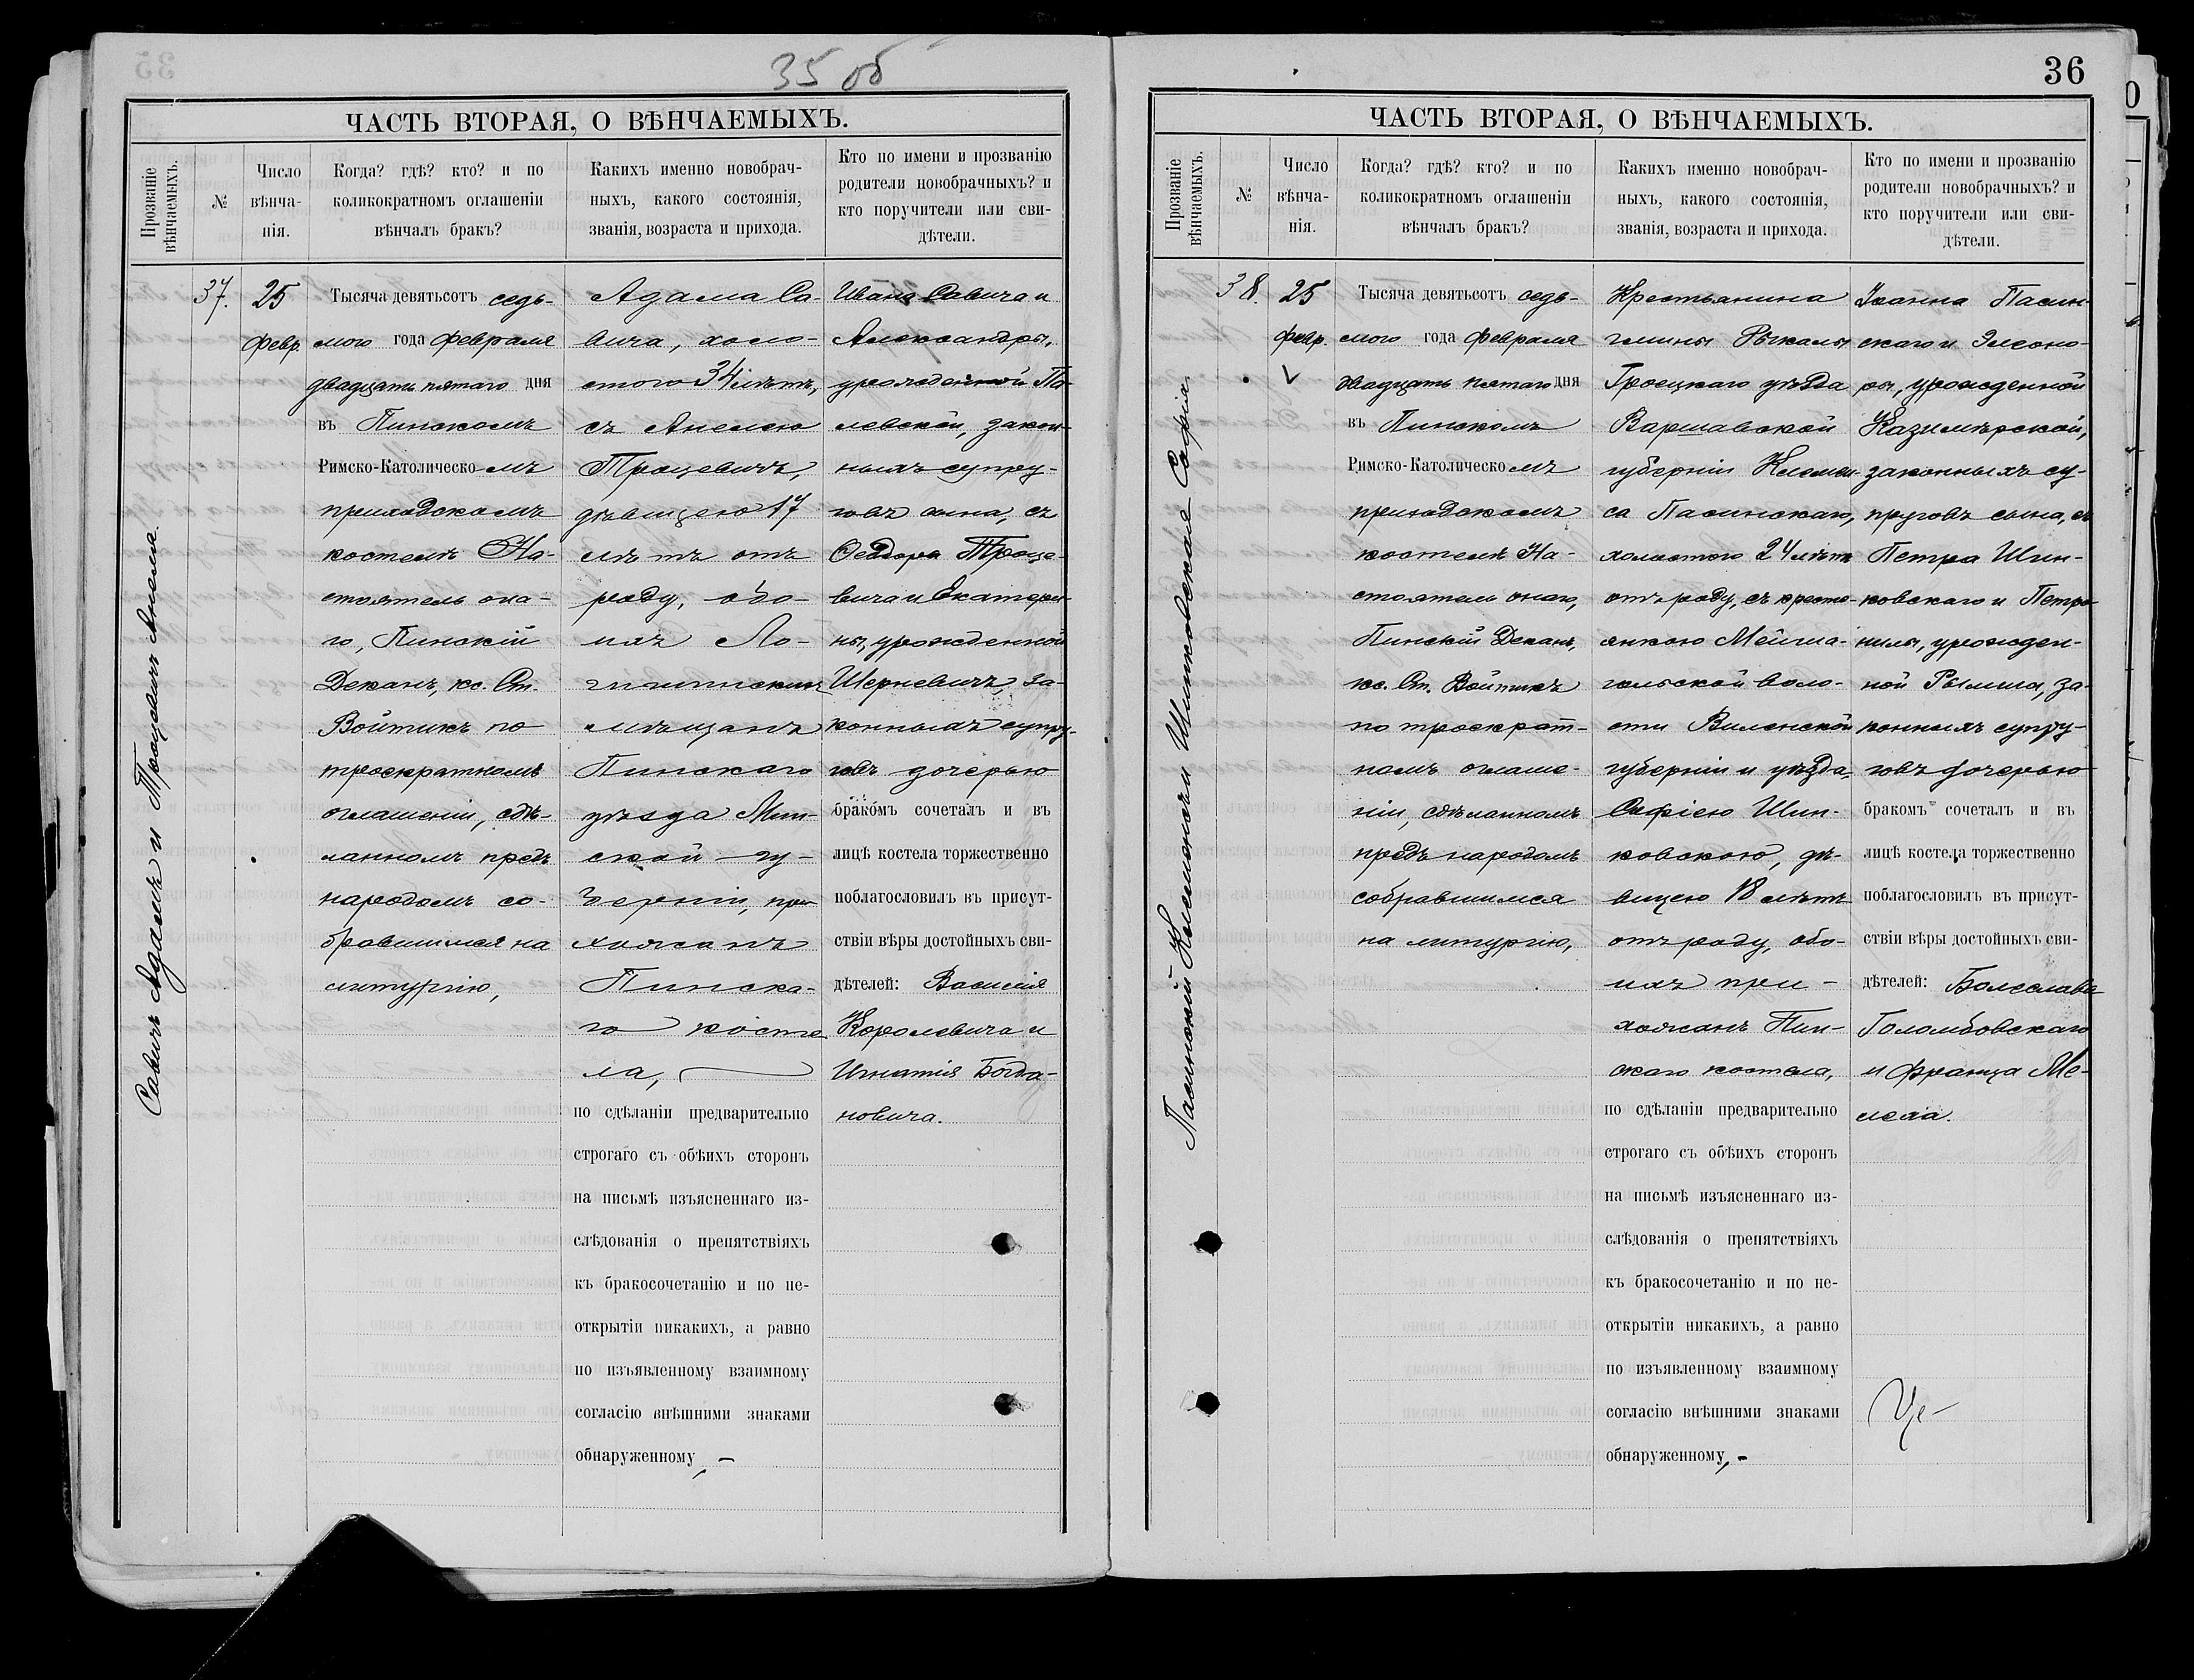 35 об
ЧАСТЬ ВТОРАЯ, О ВѢНЧАЕМЫХЪ.
Прозваніе
вѣнчаемыхъ.
№
Число
вѣнча-
нія.
Когда? гдѣ? кто? и по
коликократномъ оглашеніи
вѣнчалъ бракъ?
Какихъ именно новобрач-
ныхъ, какого состоянія,
званія, возраста и прихода.
Кто по имени и прозванію
родители новобрачныхъ? и
кто поручители или сви-
дѣтели.
Савичъ Адамъ и Троцевичъ Анеля.
37.
25
февр.
Тысяча девятьсотъ седь-
мого года февраля
двадцать пятаго дня
въ Пинскомъ
Римско-Католическомъ
приходскомъ
костелѣ На-
стоятель она-
го, Пинскій
Деканъ, кс. Ст.
Войтикъ по
троекратномъ
оглашеніи, сдѣ-
ланномъ предъ
народомъ со-
бравшимся на
литургію,
Адама Са-
вича, холо-
стого 34 лѣтъ,
съ Анелею
Троцевичъ,
дѣвицею 17
лѣтъ отъ
роду, обо-
ихъ Ло-
гишинскихъ
мѣщанъ
Пинскаго
уѣзда Мин-
ской гу-
берніи, при-
хожанъ
Пинска-
го косте-
ла,
по сдѣланіи предварительно
строгаго съ обѣихъ сторонъ
на письмѣ изъясненнаго из-
слѣдованія о препятствіяхъ
къ бракосочетанію и по не-
открытіи никакихъ, а равно
по изъявленному взаимному
согласію внѣшними знаками
обнаруженному, –
Ивана Савича и
Александры,
урожденной Па-
левской, закон-
ныхъ супру-
говъ сына, съ
Ѳеодора Троце-
вича и Екатери-
ны, урожденной
Шерневичъ, за-
конныхъ супру-
говъ дочерью
бракомъ сочеталъ и въ
лицѣ костела торжественно
поблагословилъ въ присут-
ствіи вѣры достойныхъ сви-
дѣтелей: Василія
Королевича и
Игнатія Богда-
новича.
36
ЧАСТЬ ВТОРАЯ, О ВѢНЧАЕМЫХЪ.
Прозваніе
вѣнчаемыхъ.
№
Число
вѣнча-
нія.
Когда? гдѣ? кто? и по
коликократномъ оглашеніи
вѣнчалъ бракъ?
Какихъ именно новобрач-
ныхъ, какого состоянія,
званія, возраста и прихода.
Кто по имени и прозванію
родители новобрачныхъ? и
кто поручители или сви-
дѣтели.
Пасинскій Клеменсъ и Шинковская Софія.
38.
25
февр.
Тысяча девятьсотъ седь-
мого года февраля
двадцать пятаго дня
въ Пинскомъ
Римско-Католическомъ
приходскомъ
костелѣ На-
стоятель онаго,
Пинскій Деканъ,
кс. Ст. Войтикъ
по троекрат-
номъ оглаше-
ніи, сдѣланномъ
предъ народомъ
собравшимся
на литургію,
Крестьянина
гмины Рыкалы
Гроецкаго уѣзда
Варшавской
губерніи Клемен-
са Пасинскаго,
холостого 24 лѣтъ
отъ роду, съ кресть-
янкою Мейша-
гольской воло-
сти Виленской
губерніи и уѣзда,
Софіею Шин-
ковскою, дѣ-
вицею 18 лѣтъ
отъ роду, обо-
ихъ при-
хожанъ Пин-
скаго костела,
по сдѣланіи предварительно
строгаго съ обѣихъ сторонъ
на письмѣ изъясненнаго из-
слѣдованія о препятствіяхъ
къ бракосочетанію и по не-
открытіи никакихъ, а равно
по изъявленному взаимному
согласію внѣшними знаками
обнаруженному, –
Іоанна Пасин-
скаго и Элеоно-
ры, урожденной
Казимѣрской,
законныхъ су-
пруговъ сына, съ
Петра Шин-
ковскаго и Петро-
нилы, урожден-
ной Рымша, за-
конныхъ супру-
говъ дочерью
бракомъ сочеталъ и въ
лицѣ костела торжественно
поблагословилъ въ присут-
ствіи вѣры достойныхъ сви-
дѣтелей: Болеслава
Голомбовскаго
и Франца Ме-
леха.